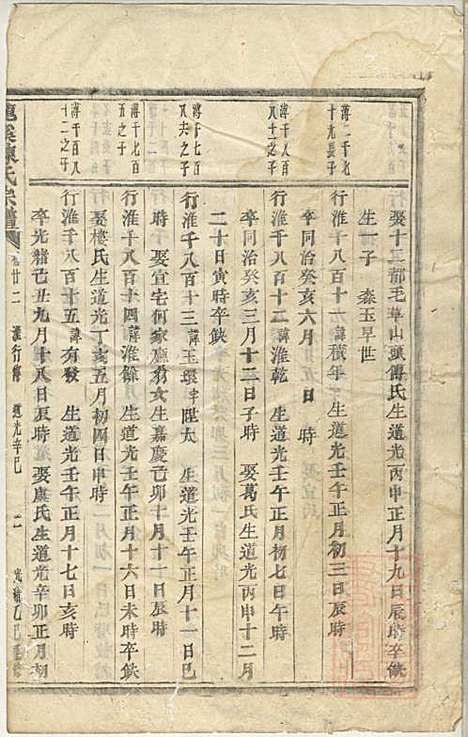 娶十二都毛草山頭傅氏生道光丙申正月十九日辰時卒缺
生一子 森玉早世
薄二千七
十九長子
行淮千八百十一諱積年 生道光壬午正月初三日辰時
卒同治癸亥六月 五日 時
薄千八百
八十一之子
行淮千八百十二諱淮乾 生道光壬午正月初七日午時
卒同治癸亥三月十三日子時 娶葛氏生道光丙申十二月
二十日寅時卒缺
薄千七百
八夫之子
行淮千八百十三諱玉環字陞太 生道光壬午正月十一日巳
時 娶宜宅何家廳豹女生嘉慶己卯十月十一日時
薄千七百
五之子
行淮千八百十四諱淮餘 生道光壬午正月十六日未時卒缺
娶樓氏生道光丁亥五月初四日申時
薄千百八
十二之子
行淮千八百十五諱有發 生道光壬午正月十七日亥時
卒光緒己丑九月十八日辰時 娶虞氏生道光辛卯正月初
龍溪陳氏宗譜
卷廿二 淮行傳 道光辛巳 二 光緒乙巳重修